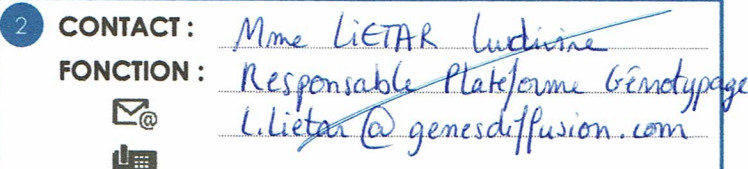 2 CONTACT : Mme LiETAR Ludivine
FONCTION : Responsable Plateforme Génotypage
l.lietar@genesdiffusion.com